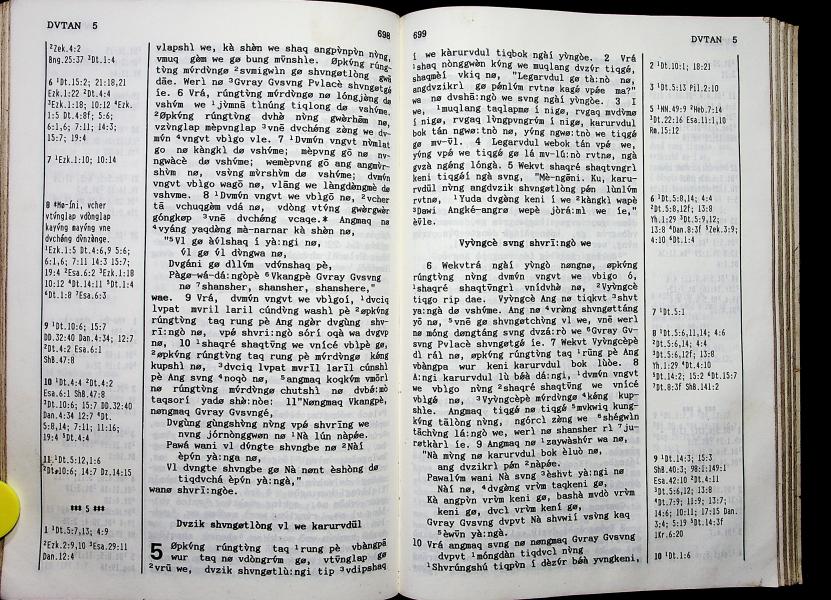 DVTAN 5
698
²Zek.4:2
Bng.25:37 ³Dt.1:4
6 ¹Dt.15:2; 21:18,21
Ezk.1:22 ²Dt.4:4
³Ezk.1:18; 10:12 ⁴Ezk.
1:5 Dt.4:8f; 5:6;
6:1,6; 7:11; 14:3;
15:7; 19:4
7 ¹Ezk.1:10; 10:14
8 *Mø-íni, vcher
vtýnglap vdònglap
kayvng mayvng vne
dvchéng dvnzènge.
¹Ezk.1:5 Dt.4:6,9 5:6;
6:1,6; 7:11 14:3 15:7;
19:4 ²Esa.6:2 ³Ezk.1:18
10:12 ⁴Dt.14:11 ⁵Dt.1:4
⁶Dt.1:8 ⁷Esa.6:3
9 ¹Dt.10:6; 15:7
DD.32:40 Dan.4:34; 12:7
²Dt.4:2 Esa.6:1
ShB.47:8
10 ¹Dt.4:4 ²Dt.4:2
Esa.6:1 ShB.47:8
³Dt.10:6; 15:7 DD.32:40
Dan.4:34 12:7 ⁴Dt.
5:8,14; 7:11; 11:16;
19:4 ⁵Dt.4:4
11 ¹Dt.5:12,1:6
²Dt.10:6; 14:7 Dz.14:15
*** 5 ***
1 ¹Dt.5:7,13; 4:9
²Ezk.2:9,10 ³Esa.29:11
Dan.12:4
vlapshì we, kà shèn we shaq angpvnpvn nvng,
vmuq gèm we gø bung mvnshle. Øpkýng rúng-
tvng mýrdvngø ²svmìgwln gø shvngøtlòng gwà
dāe. Werì nø ³Gvray Gvsvng Pvlacè shvngøtgé
íe. 6 Vrá, rúngtvng mýrdvngø nø lóngjèng dø
vshým we ¹jvmnā tlnúng tiqlong dø vshýme.
²Øpkýng rúngtvng dvhè nvng gwèrhèm nø,
vzvnglap mèpvnglap ³vnē dvchéng zèng we dv-
mýn ⁴vngvt vblgo vle. 7 ¹Dvmýn vngvt nvmlat
go nø kàngkl dø vshýme; mèpvng gō nø nv-
ngwàcè dø vshýme; wemèpvng gō ang angmýr-
shvm nø, vsvng mýrshvm dø vshýme; dvmýn
vngvt vblgo wagō nø, vlāng we làngdàngmè dø
vshvme. 8 ¹Dvmýn vngvt we vblgō nø, ²vcher
tā vchuqgèm vdá nø, vdòng vtýng gwèrgwèr
góngkøp ³vnē dvchéng vcaqe.* Angmaq nø
⁴vyáng yaqdèng mà-narnar kà shèn nø,
"⁵Vl gø àvlshaq í yà:ngì nø,
vl gø vl dvngwa nø,
Dvgánì gø dllvm vdýnshaq pè,
Pàgø-wá-dá:ngòpè ⁶Vkangpè Gvray Gvsvng
nø ⁷shansher, shansher, shanshere,"
wae. 9 Vrá, dvmýn vngvt we vblgoí, ¹dvciq
lvpat mvril laril cúndvng washl pè ²øpkýng
rúngtvng taq rung pè Ang ngèr dvgùng shv-
rī:ngò nø, vpé shvrì:ngò sóri oqà wa dvgvp
nø, 10 ¹shaqré shaqtvng we vnícé vblpè gø,
²øpkýng rúngtvng taq rung pè mýrdvngø kéng
kupshì nø, ³dvciq lvpat mvrīl larīl cúnshl
pè Ang svng ⁴noqò nø, ⁵angmaq koqkým vmōrl
nø rúngtvng mýrdvngø chutshl nø dvbé:mò
taqsorì yadø shè:nòe: 11"Nøngmaq Vkangpè,
nøngmaq Gvray Gvsvngé,
Dvgùng gùngshvng nvng vpé shvrīng we
nvng jórnònggwøn nø ¹Nà lún nàpée.
Pawá wanì vl dvngte shvngbe nø ²Nàí
èpvn yà:nga nø,
Vl dvngte shvngbe gø Nà nønt èshòng dø
tiqdvchá èpvn yà:ngà,"
wanø shvrī:ngòe.
Dvzik shvngøtlòng vl we karurvdūl
5 Øpkýng rúngtvng taq ¹rung pè vbàngpà
wur taq nø vdòngrým gø, vtýnglap gø
²vrū we, dvzik shvngøtlù:ngì tip ³vdipshaq
699
DVTAN 5
í we kàrurvdul tiqbok ngàí yvngòe. 2 Vrá
¹shaq nònggwèn kýng we muqlang dvzýr tiqgé,
shaqmèí vkiq nø, "Legarvdul gø tà:nò nø,
angdvzikrì gø pénlým rvtnø kagé vpée ma?"
wa nø dvshā:ngò we svng ngàí yvngòe. 3 I
we, ¹muqlang taqlapmø í nigø, rvgaq mvdvmø
í nigø, rvgaq lvngpvngrým í nigø, karurvdul
bok tán ngwø:tnò nø, yvng ngwø:tnò we tiqgé
gø mv-vl. 4 Legarvdul webok tán vpé we,
yvng vpé we tiqgé gø lá mv-lú:nò rvtnø, ngà
gvzà ngéng lòngà. 5 Wekvt shaqré shaqtvngrì
kení tiqgéí ngà svng, "Mè-ngøní. Ku, karu-
rvdūl nvng angdvzik shvngøtlòng pén lùnlým
rvtnø, ¹Yuda dvgàng kení í we ²kàngkl wapè
³Dawi Angké-angrø wepè jòrá:mì we íe,"
èvle.
Vyvngcè we svng shvrī:ngò we
6 Wekvtrá ngàí yvngò nøngnø, øpkýng
rúngtvng nvng dvmýn vngvt we vblgo ó,
¹shaqré shaqtvngrì vnídvhø nø, ²Vyvngcè
tiqgo rip dae. Vyvngcè Ang nø tiqkvt ³shvt
ya:ngà dø vshýme. Ang nø ⁴vrèng shvngøttáng
yō nø, ⁵vnē gø shvngøtchvng vl we; vnē werì
nø móng døngtáng svng dvzá:rò we ⁶Gvray Gv-
svng Pvlacè shvngøtgé íe. 7 Wekvt Vyvngcèpè
dl rál nø, øpkýng rúngtvng taq ¹rūng pè Ang
vbàngpa wur kení karurvdul bok lùòe. 8
A:ngì karurvdul lù béà dá:ngì, ¹dvmýn vngvt
we vblgo nvng ²shaqré shaqtvng we vnícé
vblgé nø, ³Vyvngcèpè mýrdvngø ⁴kéng kup-
shle. Angmaq tiqgé nø tiqgé ⁵mvkwiq kung-
kýng tālòng nvng, ngórcl zèng we ⁶shégwln
tāchvng lá:ngò we, werì nø shansher rì ⁷ju-
røtkàrì íe. 9 Angmaq nø ¹zaywàshýr wa nø,
"Nà mvng nø karurvdul bok èluò nø,
ang dvzikrì pán ²nàpée.
Pawalým wanì Nà svng ³èshvt yà:ngì nø
Nàí nø, ⁴dvgàng vrým taqkení gø,
Kà angpvn vrým kení gø, bashà mvdò vrým
kení gø, dvcl vrým kení gø,
Gvray Gvsvng dvpvt Nà shvwíí vsvng kaq
⁵èwvn yà:ngà.
10 Vrá angmaq svng nø nøngmaq Gvray Gvsvng
dvpvt ¹móngdàn tiqdvcl nvng
¹Shvrúngshú tiqpvn í dèzýr béà yvngkení,
2 ¹Dt.10:1; 18:21
3 ¹Dt.5:13 Pil.2:10
5 ¹NN.49:9 ²Heb.7:14
³Dt.22:16 Esa.11:1,10
Rm.15:12
6 ¹Dt.5:8,14; 4:4
²Dt.5:8,12f; 13:8
Yh.1:29 ³Dt.5:9,12;
13:8 ⁴Dan.8:3f ⁵Zek.3:9;
4:10 ⁶Dt.1:4
7 ¹Dt.5:1
8 ¹Dt.5:6,11,14; 4:6
²Dt.5:6,14; 4:4
³Dt.5:6,12f; 13:8
Yh.1:29 ⁴Dt.4:10
⁵Dt.14:2; 15:2 ⁶Dt.15:7
⁷Dt.8:3f ShB.141:2
9 ¹Dt.14:3; 15:3
ShB.40:3; 98:1:149:1
Esa.42:10 ²Dt.4:11
³Dt.5:6,12; 13:8
⁴Dt.7:9; 11:9; 13:7;
14:6; 10:11; 17:15 Dan.
3:4; 5:19 ⁵Dt.14:3f
1Kr.6:20
10 ¹Dt.1:6